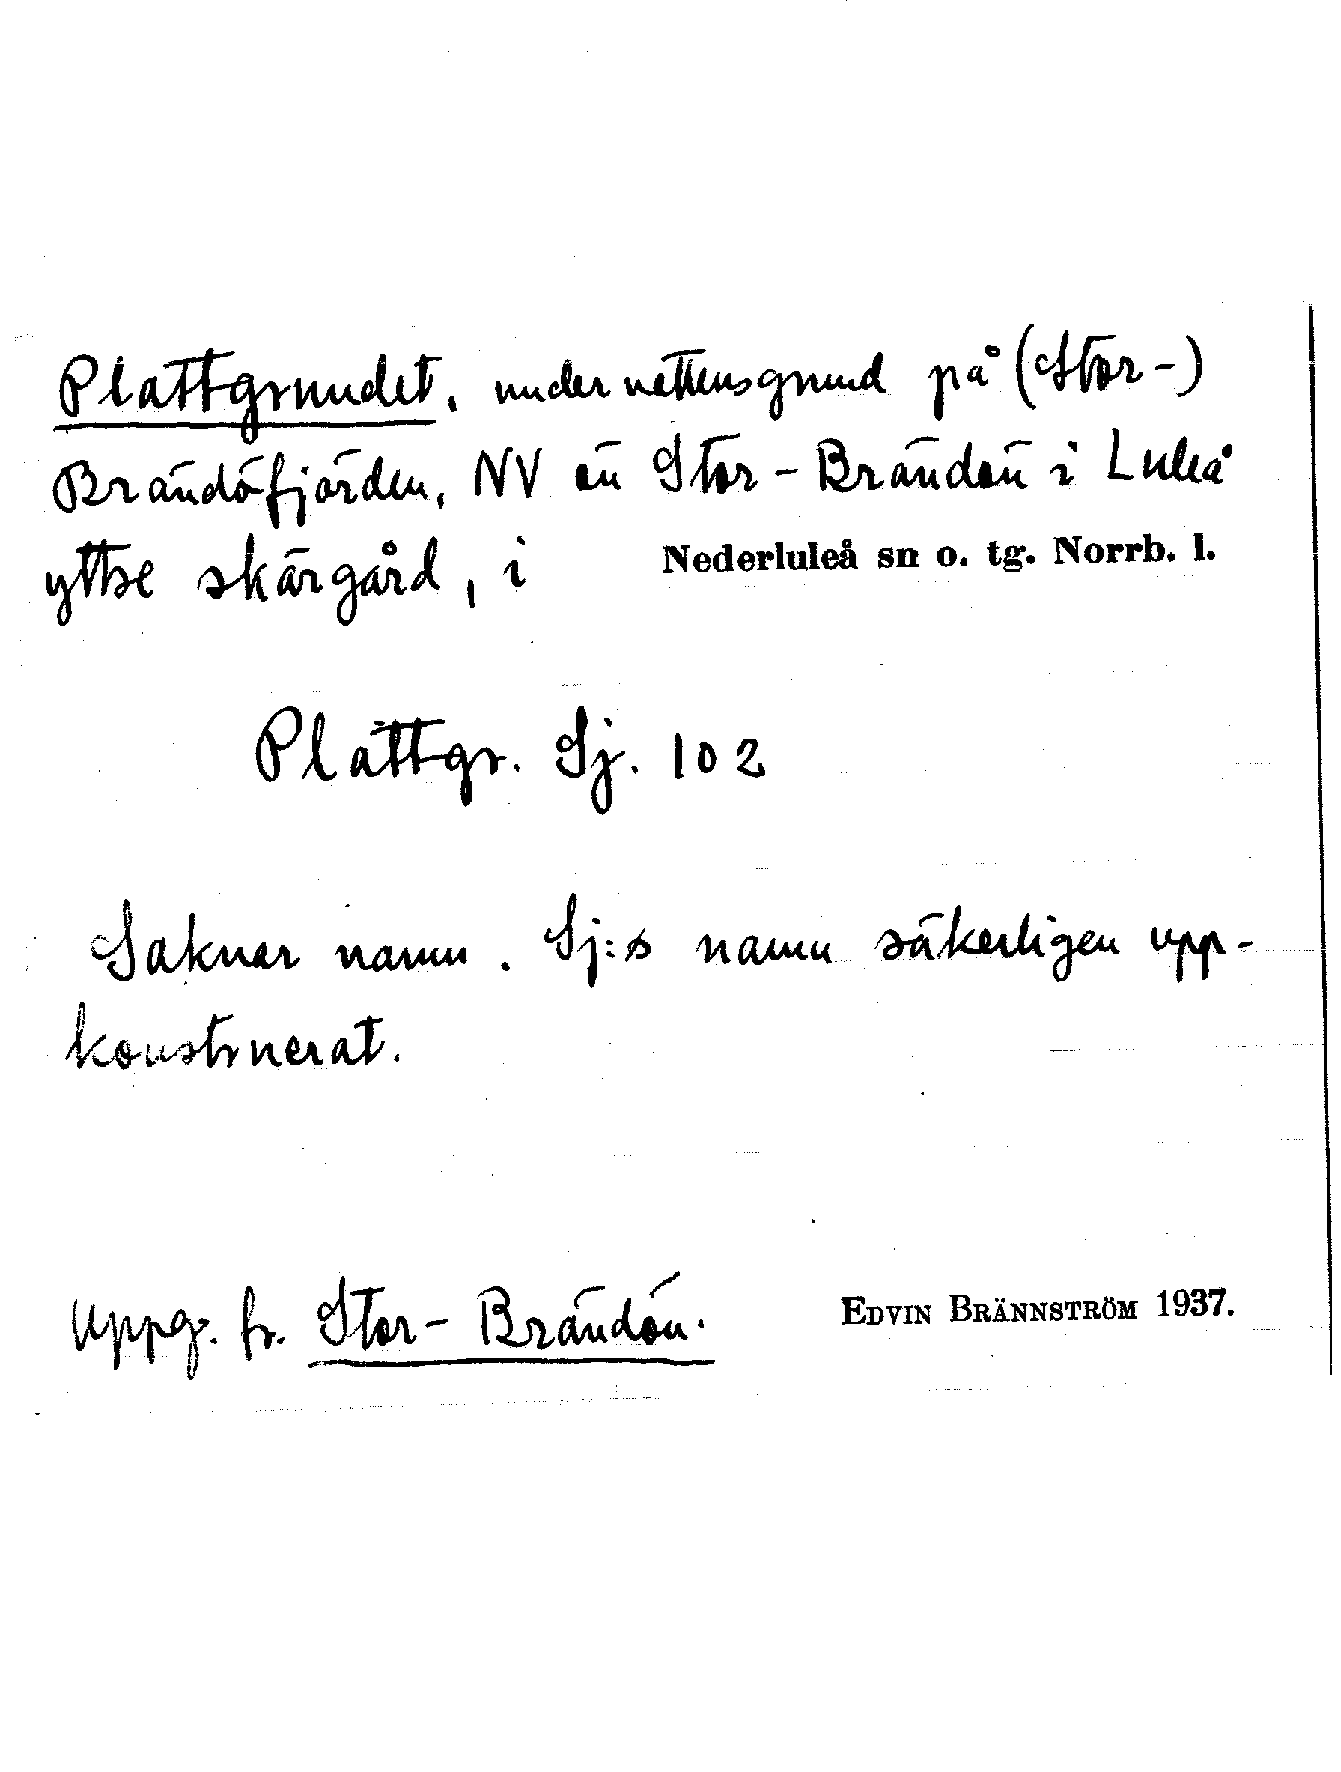 Plattgrundet, undervattensgrund på (Stor-)
Brändöfjärden, NV om Stor-Brändön i Luleå
yttre skärgård, i Nederluleå sn o. tg. Norrb. l.
Plattgr. Sj. 102
Saknar namn. Sj:s namn säkerligen upp-
konstruerat.
Uppg. fr. Stor-Brändön. EDVIN BRÄNNSTRÖM 1937.